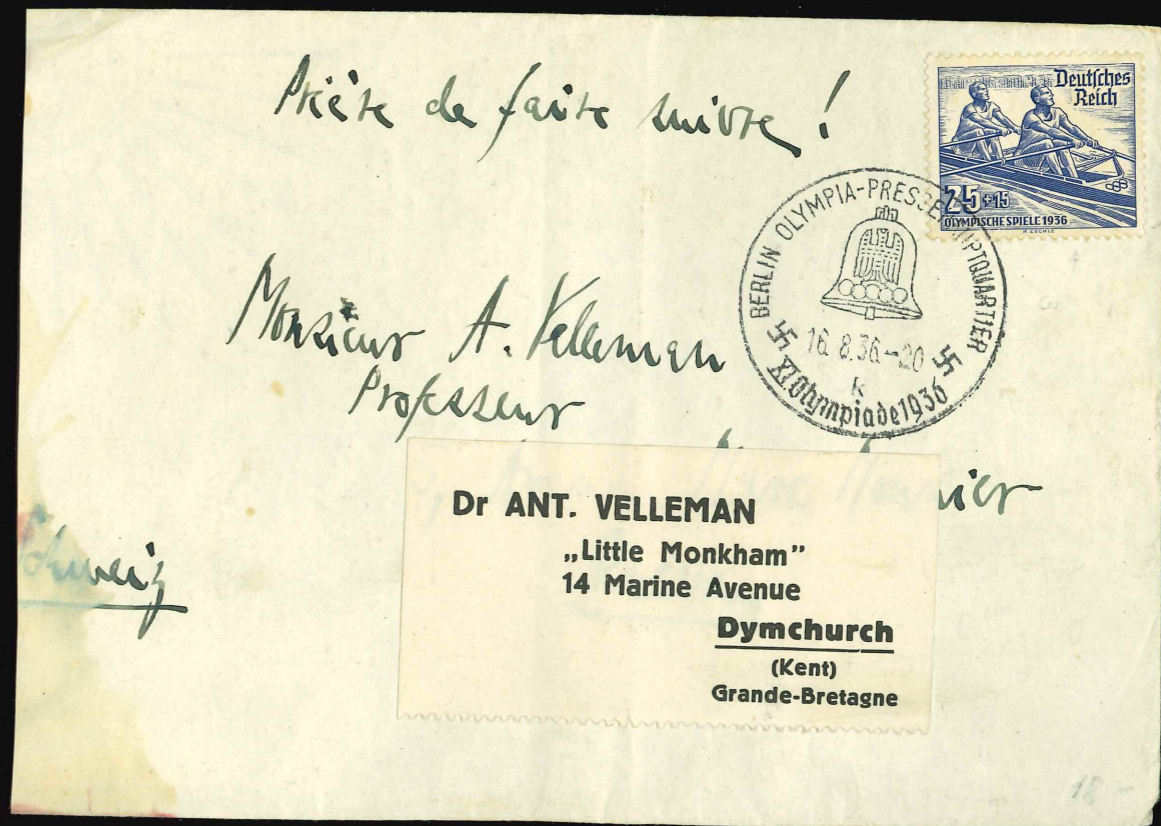 Prière de faire suivre !
Deutsches
Reich
25+15
OLYMPISCHE SPIELE 1936
BERLIN OLYMPIA-PRESSEHAUPTQUARTIER
16.8.36.-20
k
XI. Olympiade 1936
Monsieur A. Velleman
Professeur
Dr ANT. VELLEMAN
„Little Monkham”
14 Marine Avenue
Dymchurch
(Kent)
Grande-Bretagne
Schweiz
18-